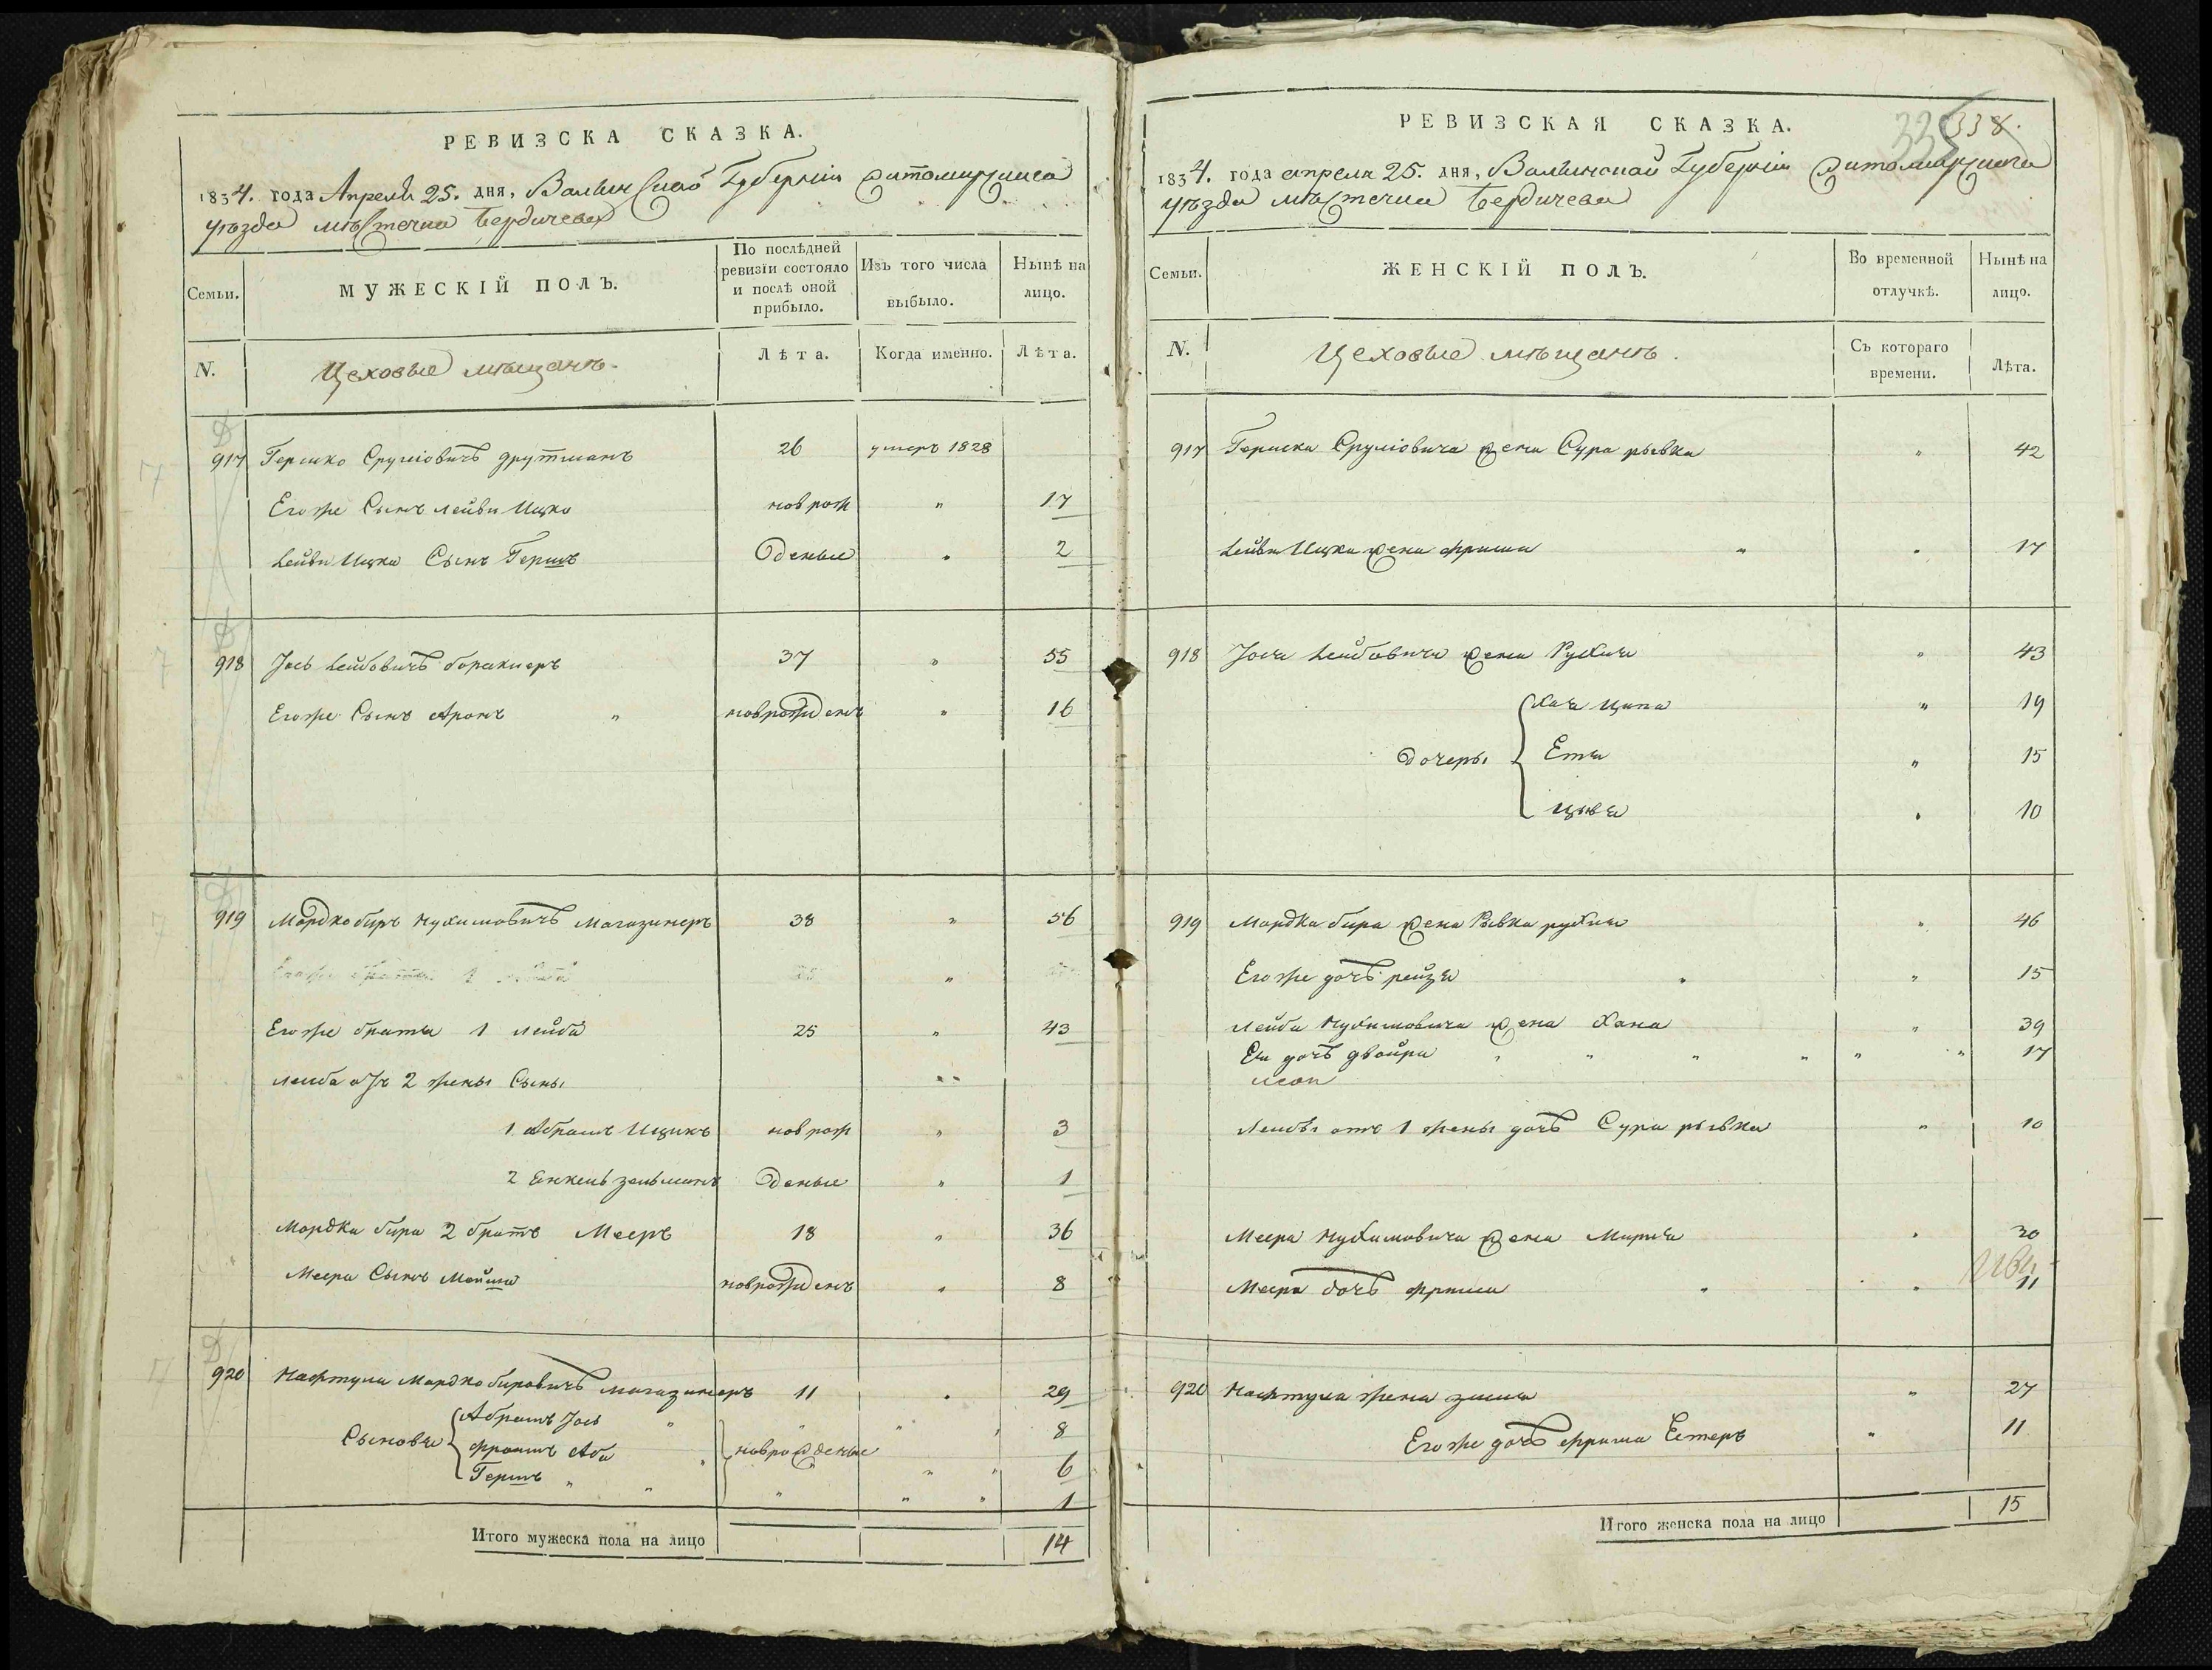 РЕВИЗСКА СКАЗКА.
1834. года Апреля 25. дня, Волынской Губернiи Житомирскаго
уѣзда мѣстечка Бердичева
Семьи.
МУЖЕСКІЙ ПОЛЪ.
По послѣдней
ревизіи состояло
и послѣ оной
прибыло.
Изъ того числа
выбыло.
Нынѣ на
лицо.
N.
Цеховые мѣщанъ.
Лѣта.
Когда именно.
Лѣта.
917 Гершко Срулiовичъ грутманъ 26 умеръ 1828
Егоже Сынъ лейви Ицко новрож " 17
Лейви Ицка Сынъ Гершъ деные " 2
918 Іось Лейбовичъ 37 " 55
Егоже Сынъ Аронъ " новрожденъ " 16
919 Мордко биръ Нухимовичъ Магазинеръ 38 " 56
Егоже братья 1 лейба 25 " 43
лейба отъ 2 жены Сыны " "
1 Абрамъ Ицикъ новрож " 3
2 Янкель зельманъ деные " 1
Мордка бира 2 братъ Мееръ 18 " 36
Меера Сынъ Мойша новрожденъ " 8
920 Нафтула Мордко бировичъ магазинеръ 11 " 29
Сыновья Абрамъ Іось " " " 8
Фроимъ Аба " новрожденые " " 6
Гершъ " " " " " 1
Итого мужеска пола на лицо 14
РЕВИЗСКАЯ СКАЗКА.
335 338.
1834. года апреля 25. дня, Волынской Губернiи Житомирскаго
уѣзда мѣстечка Бердичева
Семьи.
ЖЕНСКІЙ ПОЛЪ.
Во временной
отлучкѣ.
Нынѣ на
лицо.
N.
Цеховые мѣщанъ.
Съ котораго
времени.
Лѣта.
917 Гершка Срулiовича жена Сура рывка " 42
Лейви Ицка жена фрима " " 17
918 Іося Лейбовича жена Рухля " 43
Хая Ципа " 19
дочеры Етя " 15
Цывя " 10
919 Мордка бира жена Рывка рухля " 46
Егоже дочъ рейзя " " 15
Лейба Нухимовича жена Хана " 39
Ея дочъ двойра " " " " " " 17
Лейбы отъ 1 жены дочъ Сура рывка " 10
Меера Нухимовича жена Миря " 30
Меера дочъ фрима " " 11
920 Нафтула жена зисля " 27
Егоже дочъ фрима Естеръ " 11
Итого женска пола на лицо 15